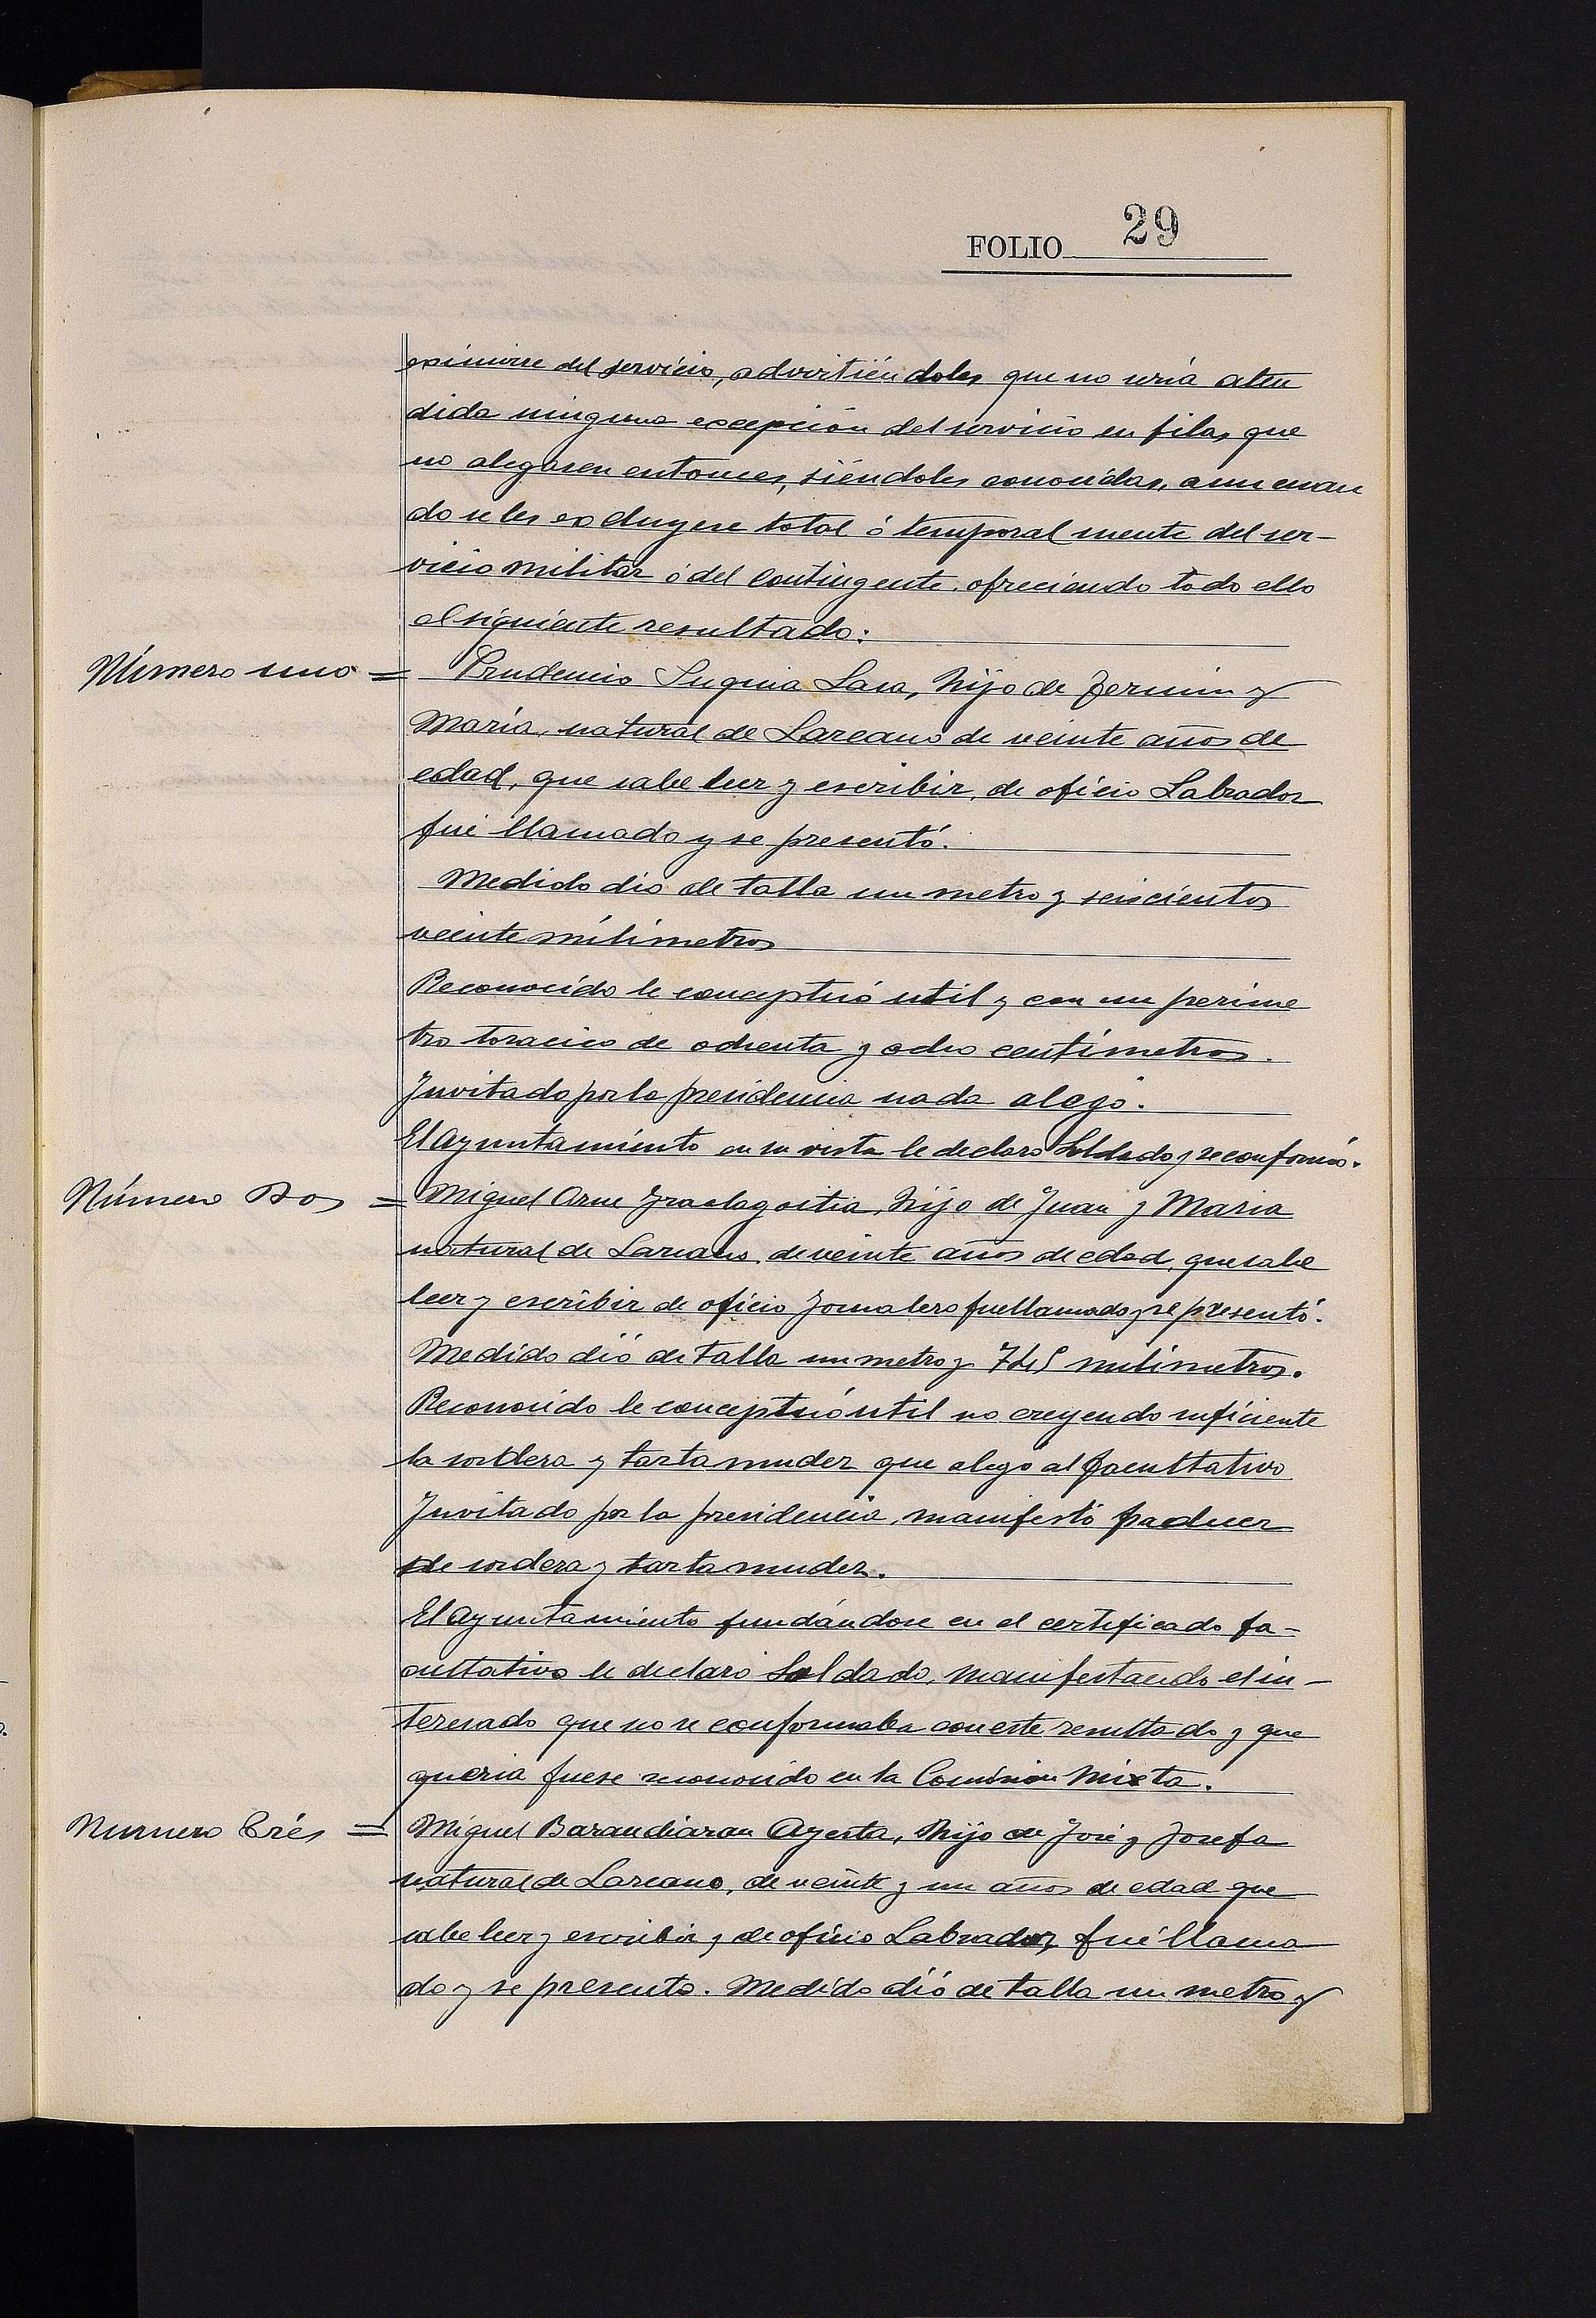 FOLIO 29
eximirse del servicio, advirtiéndoles que no sería aten
dida ninguna excepción del servicio en filas que
no alegasen entonces, siéndoles conocidas, aun cuan
do se les excluyese total ó temporalmente del ser-
vicio militar ó del contingente, ofreciendo todo ello
el siguiente resultado:
Número uno = Prudencio Suquia Lasa, hijo de Fermin y
María, natural de Lazcano de veinte años de
edad, que sabe leer y escribir, de oficio Labrador
fué llamado y se presentó.
Medido dio de talla un metro y seiscientos
veinte milimetros
Reconocido le conceptuó util y con un perime
tro toracico de ochenta y ocho centímetros.
Invitado por la presidencia nada alegó.
El Ayuntamiento en su vista le declaró Soldado y se conformó.
Número Dos = Miguel Arue hijo de Juan y Maria
natural de Lazcano, de veinte años de edad, que sabe
leer y escribir de oficio Jornalero fue llamado y se presentó.
Medido dió de talla un metro y 745 milimetros.
Reconocido le conceptuó util no creyendo suficiente
la sordera y tartamudez que alegó al facultativo
Invitado por la presidencia, manifestó padecer
de sordera y tartamudez.
El Ayuntamiento fundándose en el certificado fa-
cultativo le declaró Soldado, manifestando el in-
teresado que no se conformaba con este resultado y que
queria fuese reconocido en la Comision Mixta.
Numero Trés = Miguel Barandiaran Ayerta, hijo de José y Josefa
natural de Lazcano, de veinte y un años de edad que
sabe leer y escribir y de oficio Labrador, fué llama
do y se presento. Medido dió de talla un metro y